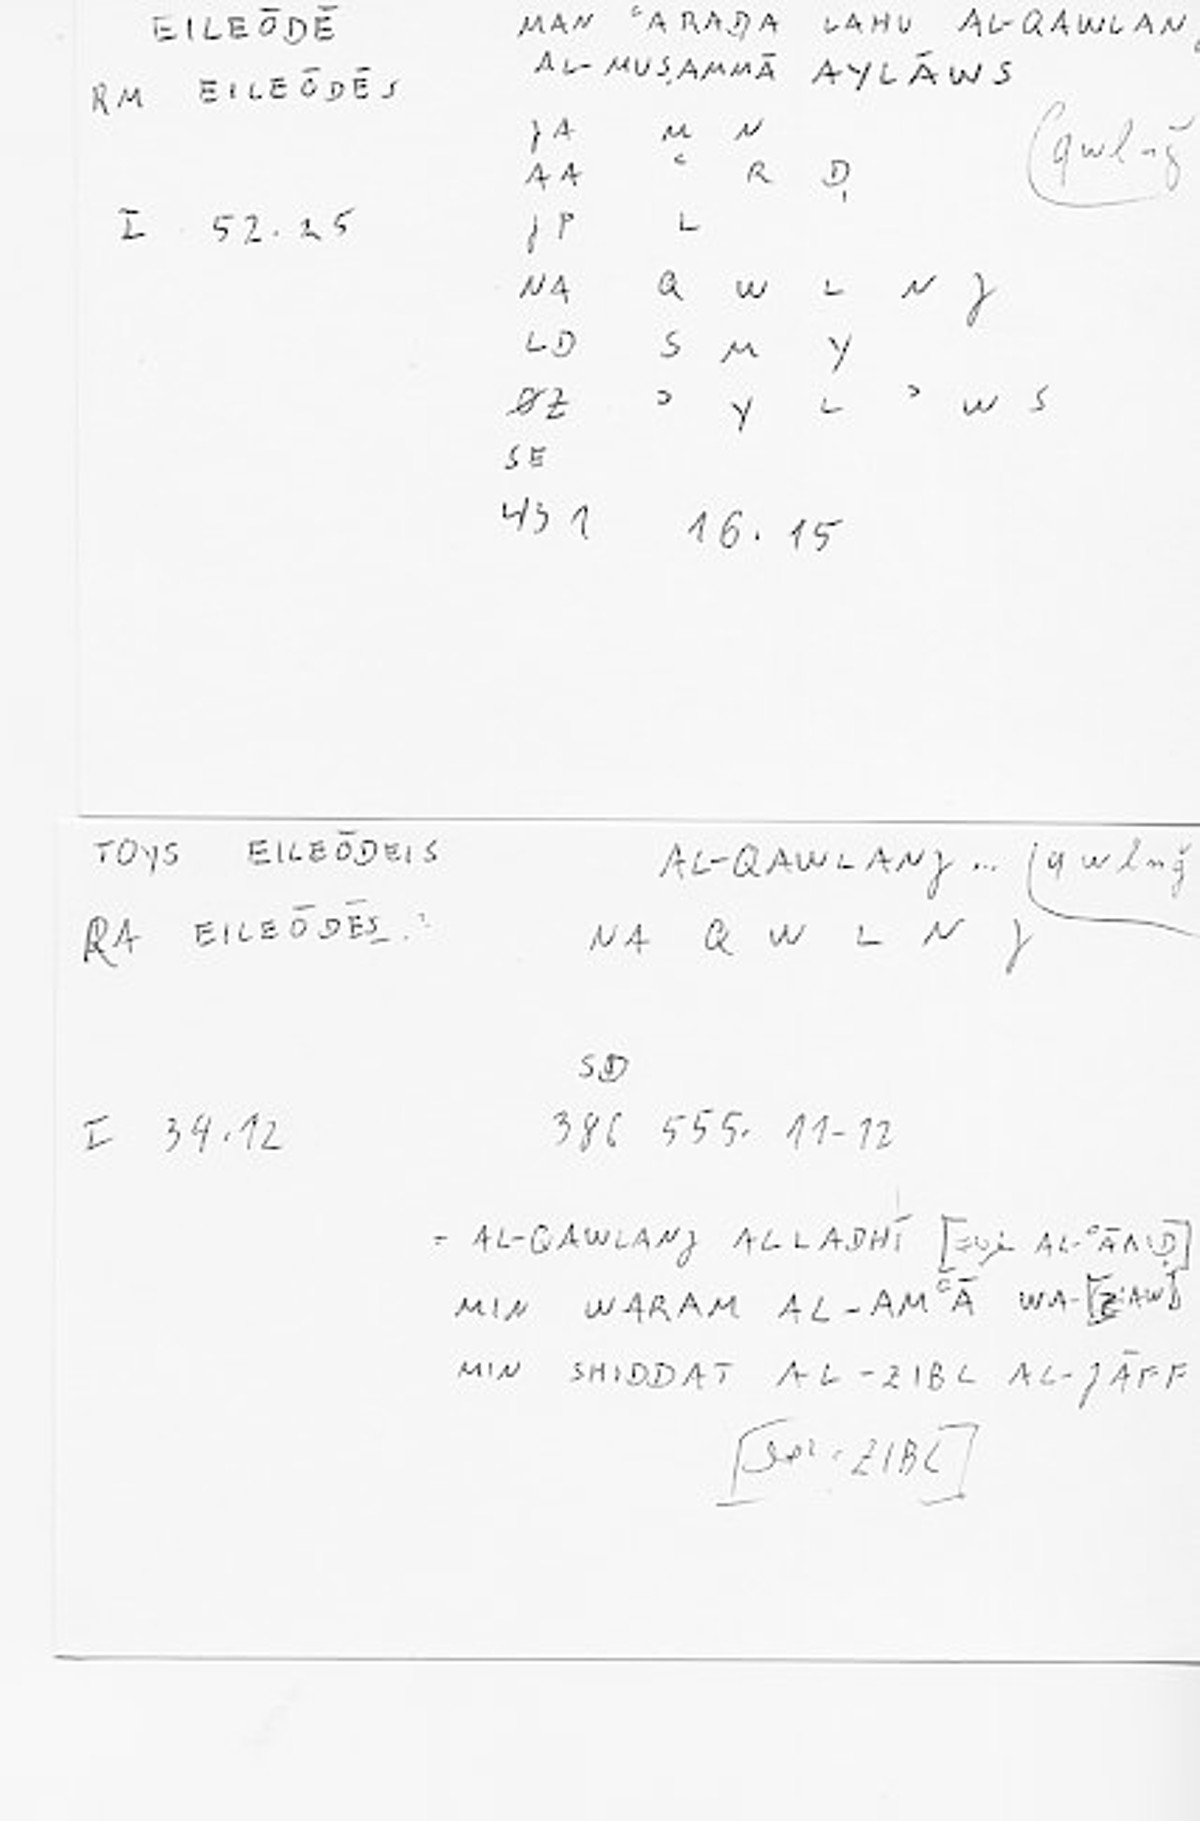 EILEŌDĒ MAN ʿARAḌA LAHU AL-QAWLANJ
RM EILEŌDĒS AL-MUSAMMĀ AYLĀWS
JA M N (qwlnǧ
AA ʿ R Ḍ
I 52.25 JP L
NA Q W L N J
LD S M Y
ØZ ʾ Y L ʾ W S
SE
431 16.15
TOYS EILEŌDEIS AL-QAWLANJ ... (qwlnǧ
RA EILEŌDĒS NA Q W L N J
SD
I 34.12 386 555. 11-12
= AL-QAWLANJ ALLADHĪ AL-ʿĀRIḌ]
MIN WARAM AL-AMʿĀ WA-
MIN SHIDDAT AL-ZIBL AL-JĀFF
ZIBL]